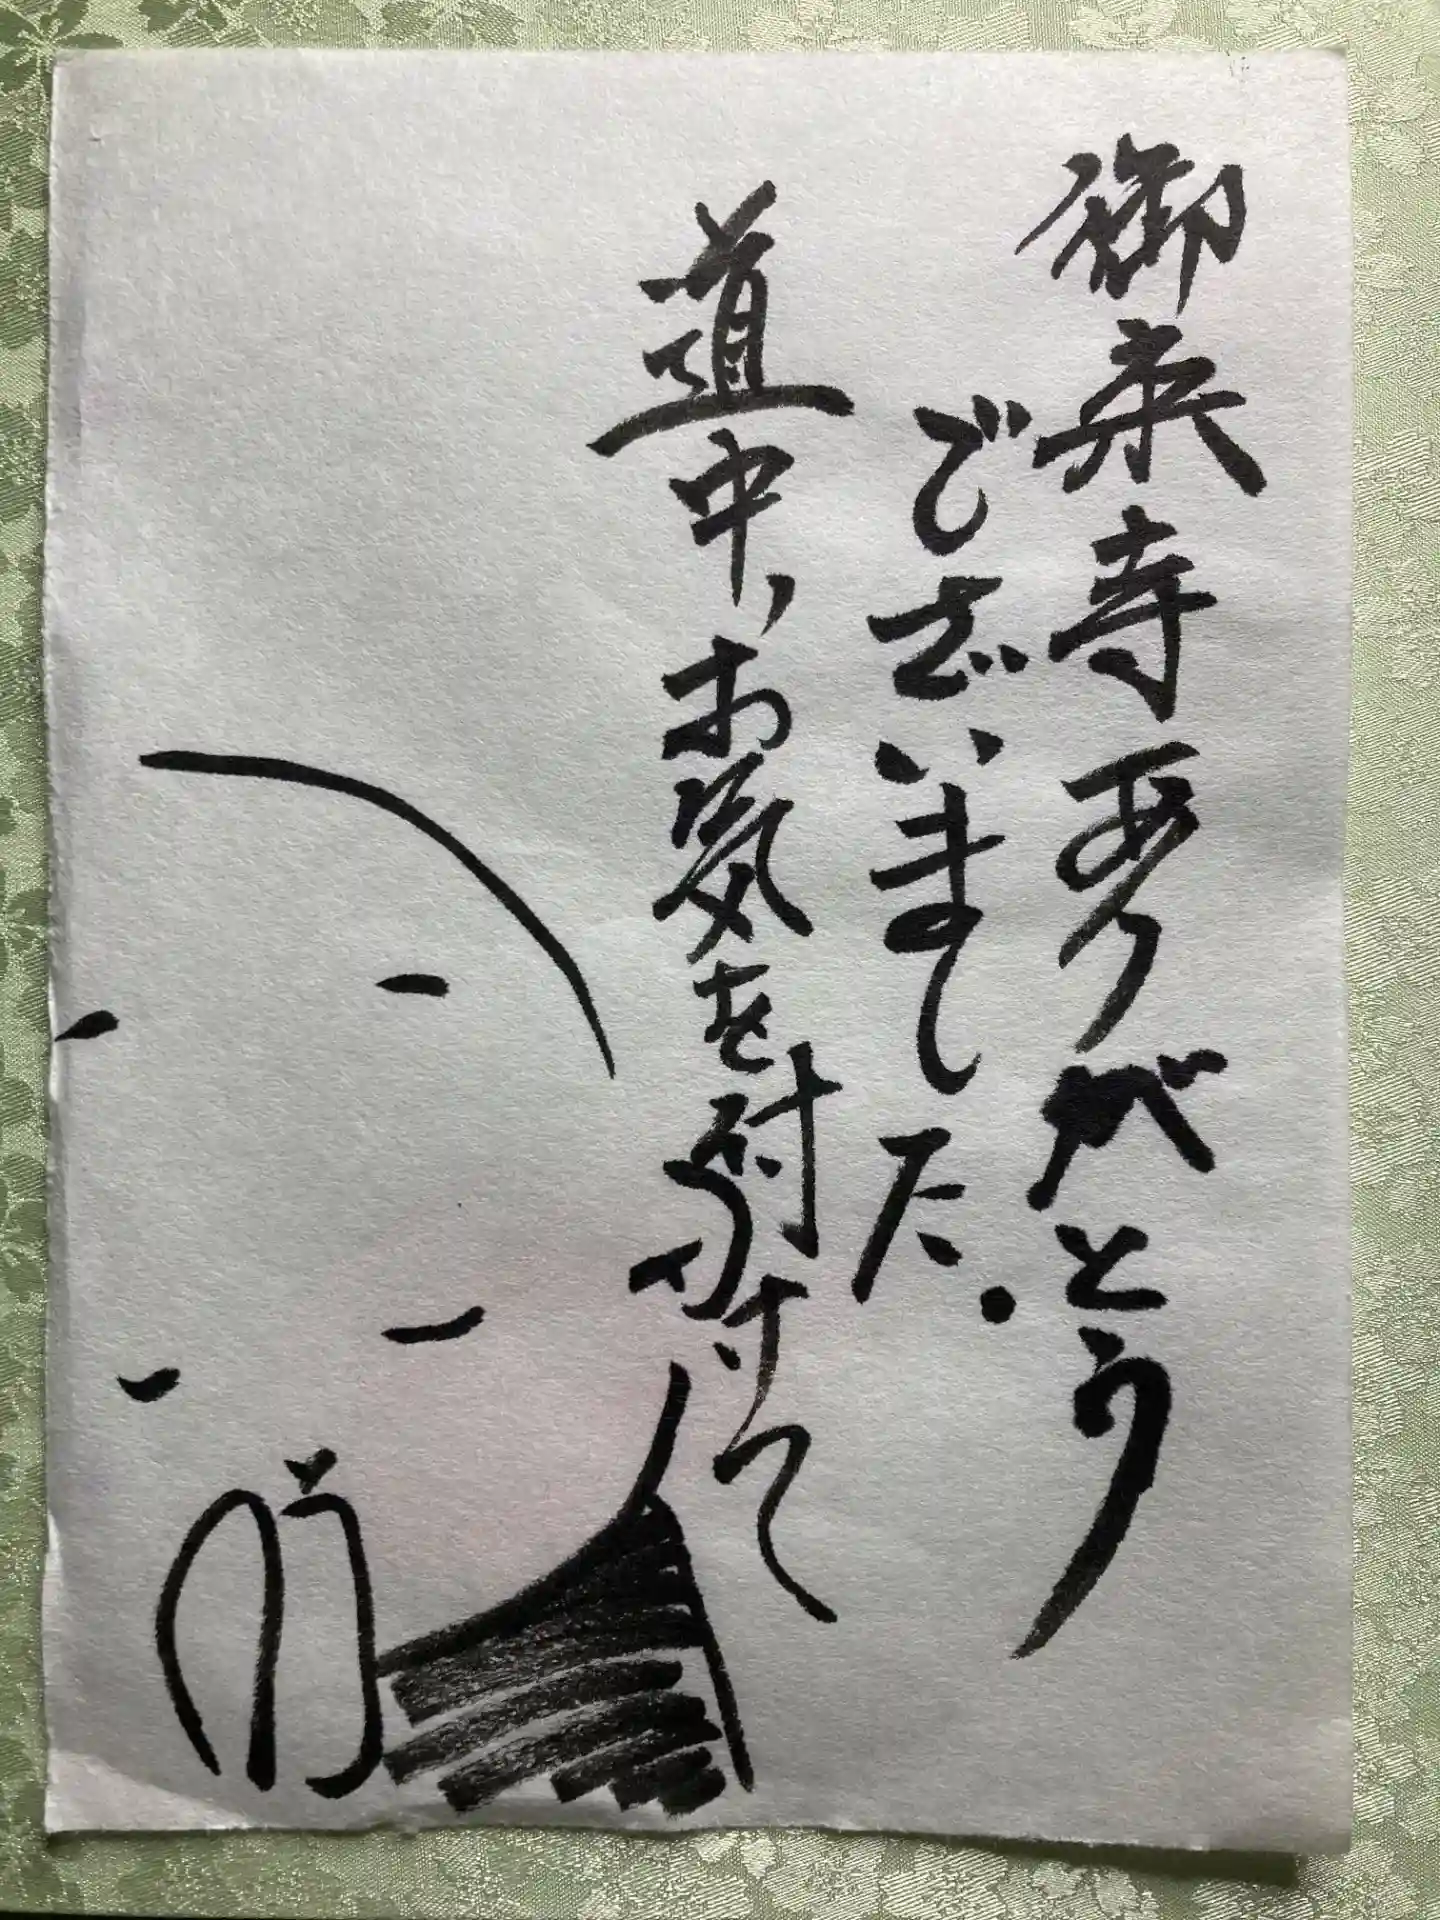 御来寺ありがとう
でございました。
道中、お気を付けて